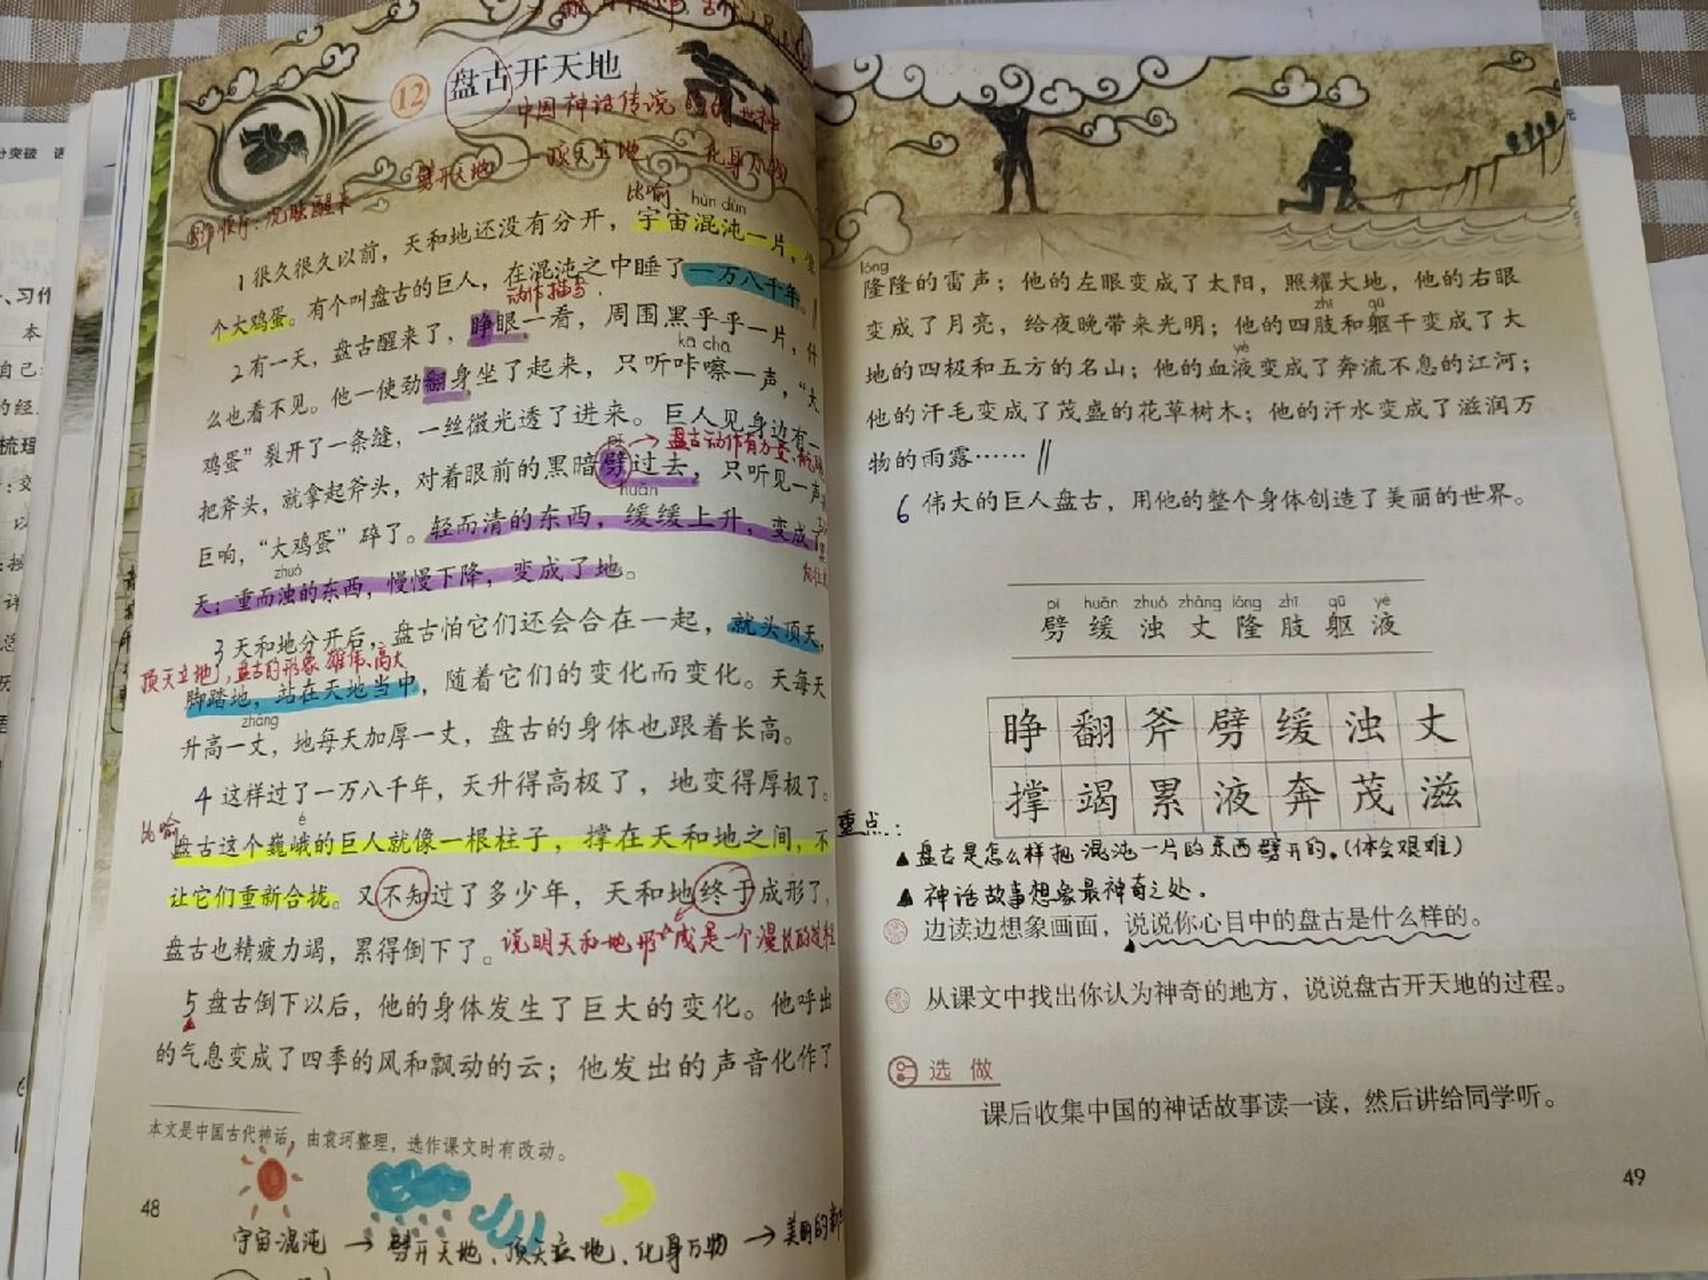 12 盘古开天地
中国神话传说
劈开天地 — 顶天立地 — 化身万物
比喻 hùn dùn
1 很久很久以前，天和地还没有分开，宇宙混沌一片，像
个大鸡蛋。有个叫盘古的巨人，在混沌之中睡了一万八千年。
动作描写
2 有一天，盘古醒来了，睁眼一看，周围黑乎乎一片，什
kā chā
么也看不见。他一使劲翻身坐了起来，只听咔嚓一声，“大
鸡蛋”裂开了一条缝，一丝微光透了进来。巨人见身边有一
pī → 盘古动作有力量
把斧头，就拿起斧头，对着眼前的黑暗劈过去，只听见一声
huǎn
巨响，“大鸡蛋”碎了。轻而清的东西，缓缓上升，变成了
zhuó
天；重而浊的东西，慢慢下降，变成了地。
3 天和地分开后，盘古怕它们还会合在一起，就头顶天，
顶天立地，盘古的形象雄伟、高大
脚踏地，站在天地当中，随着它们的变化而变化。天每天
zhàng
升高一丈，地每天加厚一丈，盘古的身体也跟着长高。
4 这样过了一万八千年，天升得高极了，地变得厚极了。
比喻 é
盘古这个巍峨的巨人就像一根柱子，撑在天和地之间，不
让它们重新合拢。又不知过了多少年，天和地终于成形了，
盘古也精疲力竭，累得倒下了。说明天和地形成是一个漫长的过程
5 盘古倒下以后，他的身体发生了巨大的变化。他呼出
的气息变成了四季的风和飘动的云；他发出的声音化作了
本文是中国古代神话，由袁珂整理，选作课文时有改动。
48
宇宙混沌 → 劈开天地、顶天立地、化身万物 → 美丽的
lóng
隆隆的雷声；他的左眼变成了太阳，照耀大地，他的右眼
zhī qū
变成了月亮，给夜晚带来光明；他的四肢和躯干变成了大
yè
地的四极和五方的名山；他的血液变成了奔流不息的江河；
他的汗毛变成了茂盛的花草树木；他的汗水变成了滋润万
物的雨露……
6 伟大的巨人盘古，用他的整个身体创造了美丽的世界。
pī huǎn zhuó zhàng lóng zhī qū yè
劈 缓 浊 丈 隆 肢 躯 液
睁 翻 斧 劈 缓 浊 丈
撑 竭 累 液 奔 茂 滋
重点：
▲ 盘古是怎么样把混沌一片的东西劈开的。(体会艰难)
▲ 神话故事想象最神奇之处。
边读边想象画面，说说你心目中的盘古是什么样的。
从课文中找出你认为神奇的地方，说说盘古开天地的过程。
选做
课后收集中国的神话故事读一读，然后讲给同学听。
49